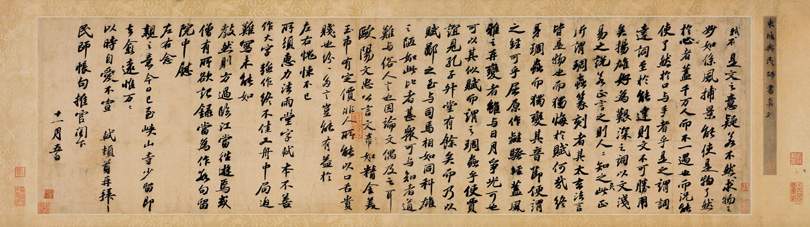 東坡與民師書
軾不 是文之意疑若不然求物之
妙如係風捕景能使是物了然
於心者蓋千萬人而不一遇也而況能
使了然於口與手者乎是之謂詞
達詞至於能達則文不可勝用
矣揚雄好為艱深之詞以文淺
易之說若正言之則人人知之矣此正
所謂雕蟲篆刻者其太玄法言
皆是物也而獨悔於賦何哉終
身雕蟲而獨變其音節便謂
之經可乎屈原作離騷經蓋風
雅之再變者雖與日月爭光可也
可以其似賦而謂之雕蟲乎使賈
誼見孔子升堂有餘矣而乃以
賦鄙之至與司馬相如同科雄
之陋如此比者甚眾可與知者道
難與俗人言也因論文偶及之耳
歐陽文忠公言文章如精金美
玉市有定價非人所能以口舌貴
賤也紛紛多言豈能有益於
左右愧悚不已
所須惠力法雨堂字軾本不善
作大字強作終不佳又舟中局迫
難寫未能如
教然軾方過臨江當往遊焉或
僧有所欲記錄當為作數句留
院中慰
左右念
親之意今日已至峽山寺少留即
去愈遠惟萬萬
以時自愛不宣 軾頓首再拜
民師帳句推官閣下
十一月五日